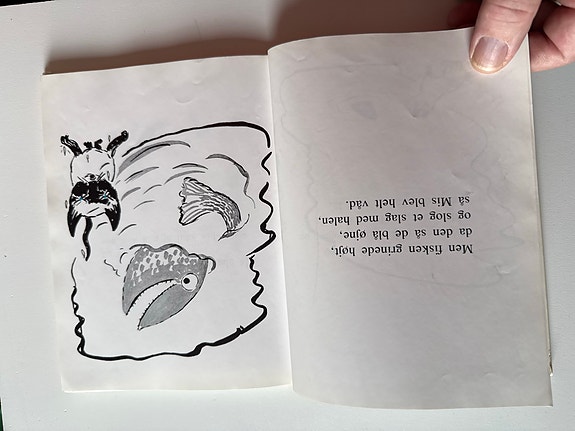 Men fisken grinede højt,
da den så de blå øjne,
og slog et slag med halen,
så Mis blev helt våd.